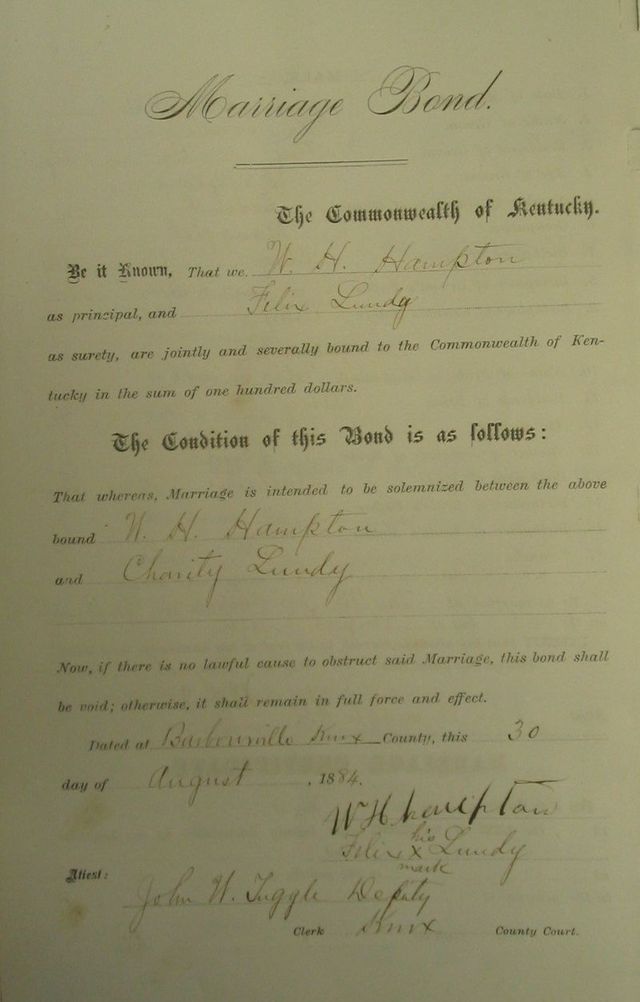 Marriage Bond.
The Commonwealth of Kentucky.
Be it Known, That we, W. H. Hampton
as principal, and Felix Lundy
as surety, are jointly and severally bound to the Commonwealth of Ken-
tucky in the sum of one hundred dollars.
The Condition of this Bond is as follows:
That whereas, Marriage is intended to be solemnized between the above
bound W. H. Hampton
and Charity Lundy
Now, if there is no lawful cause to obstruct said Marriage, this bond shall
be void; otherwise, it shall remain in full force and effect.
Dated at Barbourville Knox County, this 30
day of August, 1884.
W H hampton
his
Felix X Lundy
mark
Attest:
John W. Tuggle Deputy
Clerk Knox County Court.